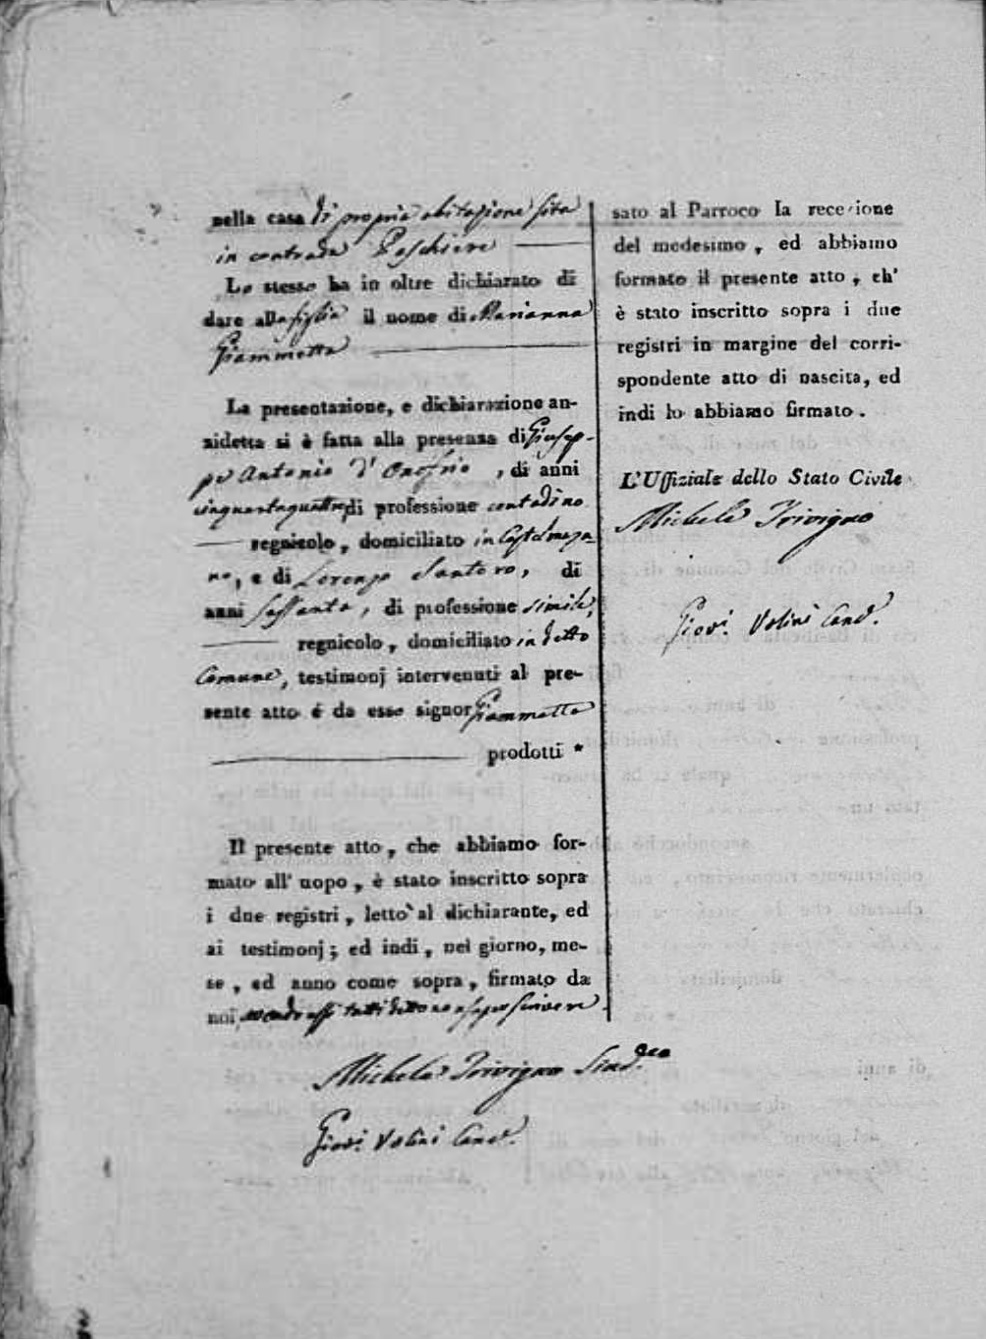 nella casa di propria abitazione sita
in contrada Peschiere
Lo stesso ha in oltre dichiarato di
dare alla figlia il nome di Marianna
Giammetta
La presentazione, e dichiarazione an-
zidetta si è fatta alla presenza di Giusep-
pe Antonio d'Onofrio, di anni
cinquantaquattro di professione contadino
regnicolo, domiciliato in Castelmeza
no, e di Lorenzo Santoro, di
anni sessanta, di professione simile,
regnicolo, domiciliato in detto
Comune, testimonj intervenuti al pre-
sente atto é da esso signor Giammetta
prodotti *
Il presente atto, che abbiamo for-
mato all' uopo, è stato inscritto sopra
i due registri, letto al dichiarante, ed
ai testimonj; ed indi, nel giorno, me-
se, ed anno come sopra, firmato da
noi tutti detto no saper scrivere
Michele Trivigno Sind.co
Giov. Volini Canc.
sato al Parroco la recezione
del medesimo, ed abbiamo
formato il presente atto, ch'
è stato inscritto sopra i due
registri in margine del corri-
spondente atto di nascita, ed
indi lo abbiamo firmato.
L'Uffiziale dello Stato Civile
Michele Trivigno
Giov. Volini Canc.